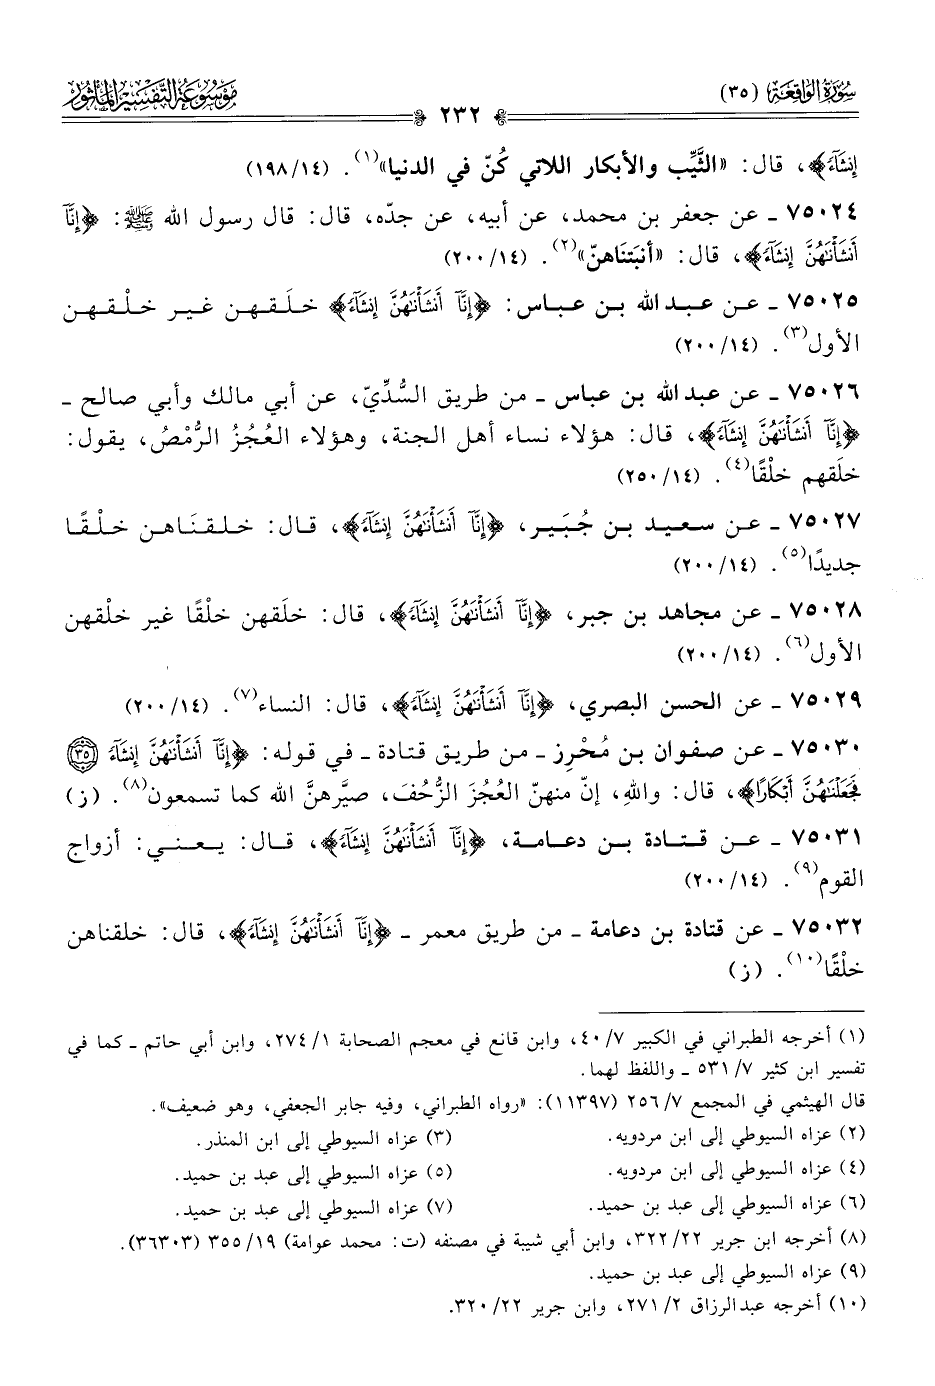 سُورَةُ الوَاقِعَةِ (٣٥)
٢٣٢
مَوْسُوعَةُ التَّفْسِيرِ المَأْثُورِ
إِنشَآءً﴾، قال: «الثَّيِّب والأبكار اللاتي كُنّ في الدنيا»(١). (١٤/ ١٩٨)
٧٥٠٢٤ ـ عن جعفر بن محمد، عن أبيه، عن جدّه، قال: قال رسول الله ﷺ: ﴿إِنَّآ
أَنشَأْنَٰهُنَّ إِنشَآءً﴾، قال: «أنبَتناهنّ»(٢). (١٤/ ٢٠٠)
٧٥٠٢٥ ـ عن عبد الله بن عباس: ﴿إِنَّآ أَنشَأْنَٰهُنَّ إِنشَآءً﴾ خلَقهن غير خلْقهن
الأول(٣). (١٤/ ٢٠٠)
٧٥٠٢٦ ـ عن عبد الله بن عباس ـ من طريق السُّدِّيّ، عن أبي مالك وأبي صالح ـ
﴿إِنَّآ أَنشَأْنَٰهُنَّ إِنشَآءً﴾، قال: هؤلاء نساء أهل الجنة، وهؤلاء العُجُزُ الرُّمْصُ، يقول:
خلَقهم خلْقًا(٤). (١٤/ ٢٥٠)
٧٥٠٢٧ ـ عن سعيد بن جُبَير، ﴿إِنَّآ أَنشَأْنَٰهُنَّ إِنشَآءً﴾، قال: خلقنَاهن خلْقًا
جديدًا(٥). (١٤/ ٢٠٠)
٧٥٠٢٨ ـ عن مجاهد بن جبر، ﴿إِنَّآ أَنشَأْنَٰهُنَّ إِنشَآءً﴾، قال: خلَقهن خلْقًا غير خلْقهن
الأول(٦). (١٤/ ٢٠٠)
٧٥٠٢٩ ـ عن الحسن البصري، ﴿إِنَّآ أَنشَأْنَٰهُنَّ إِنشَآءً﴾، قال: النساء(٧). (١٤/ ٢٠٠)
٧٥٠٣٠ ـ عن صفوان بن مُحْرِز ـ من طريق قتادة ـ في قوله: ﴿إِنَّآ أَنشَأْنَٰهُنَّ إِنشَآءً ٣٥
فَجَعَلْنَٰهُنَّ أَبْكَارًا﴾، قال: واللهِ، إنّ منهنّ العُجُزَ الزُّحُفَ، صيَّرهنَّ الله كما تسمعون(٨). (ز)
٧٥٠٣١ ـ عن قتادة بن دعامة، ﴿إِنَّآ أَنشَأْنَٰهُنَّ إِنشَآءً﴾، قال: يعني: أزواج
القوم(٩). (١٤/ ٢٠٠)
٧٥٠٣٢ ـ عن قتادة بن دعامة ـ من طريق معمر ـ ﴿إِنَّآ أَنشَأْنَٰهُنَّ إِنشَآءً﴾، قال: خلقناهن
خلْقًا(١٠). (ز)
(١) أخرجه الطبراني في الكبير ٧/ ٤٠، وابن قانع في معجم الصحابة ١/ ٢٧٤، وابن أبي حاتم ـ كما في
تفسير ابن كثير ٧/ ٥٣١ ـ واللفظ لهما.
قال الهيثمي في المجمع ٧/ ٢٥٦ (١١٣٩٧): «رواه الطبراني، وفيه جابر الجعفي، وهو ضعيف».
(٢) عزاه السيوطي إلى ابن مردويه. (٣) عزاه السيوطي إلى ابن المنذر.
(٤) عزاه السيوطي إلى ابن مردويه. (٥) عزاه السيوطي إلى عبد بن حميد.
(٦) عزاه السيوطي إلى عبد بن حميد. (٧) عزاه السيوطي إلى عبد بن حميد.
(٨) أخرجه ابن جرير ٢٢/ ٣٢٢، وابن أبي شيبة في مصنفه (ت: محمد عوامة) ١٩/ ٣٥٥ (٣٦٣٠٣).
(٩) عزاه السيوطي إلى عبد بن حميد.
(١٠) أخرجه عبدالرزاق ٢/ ٢٧١، وابن جرير ٢٢/ ٣٢٠.